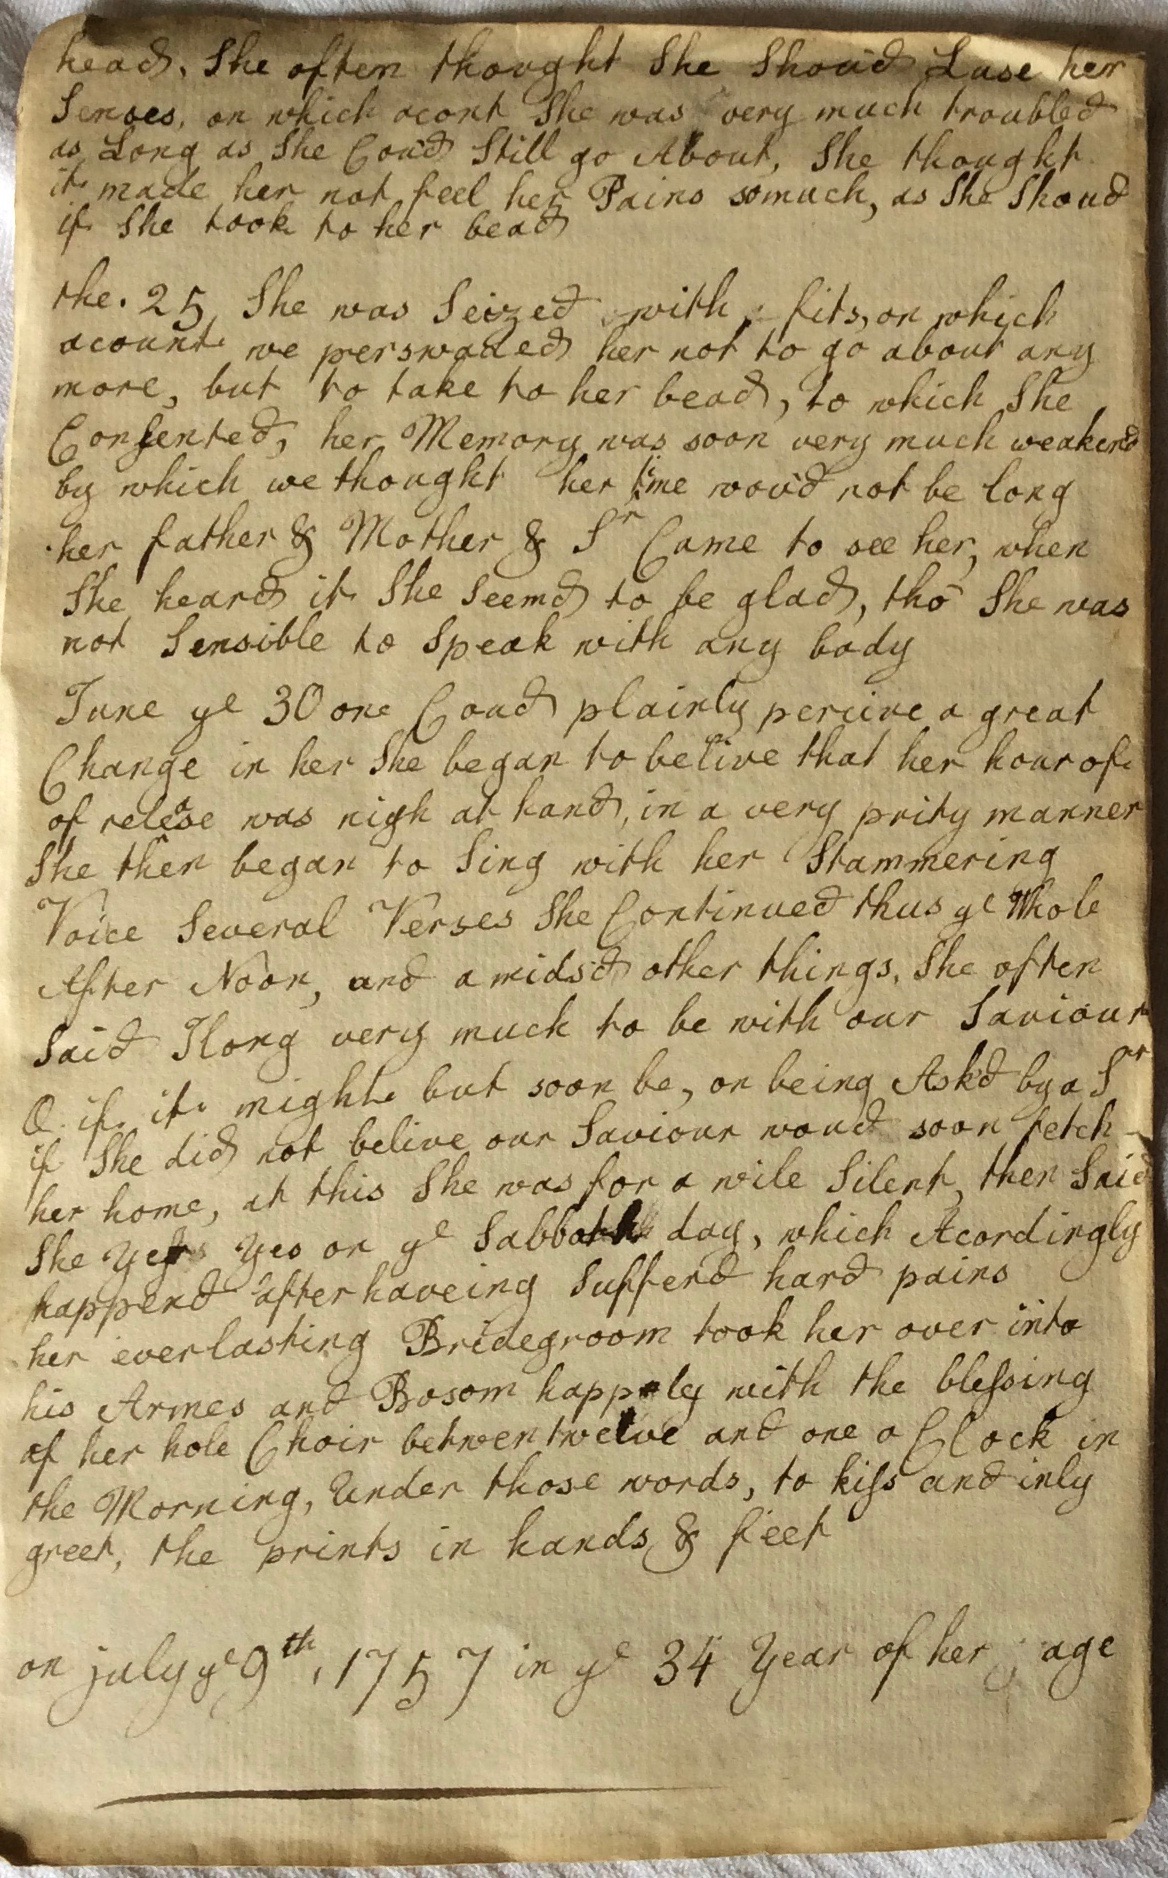 head, She often thought She Shoud Luse her
Senses, on which acont She was very much troubled
as Long as She Coud Still go About, She thought
it made her not feel her Pains somuch, as She Shoud
if She took to her bead
the. 25 She was Seized with fits, on which
acount we perswaded her not to go about any
more, but to take to her bead, to which She
Consented, her Memory was soon very much weakend
by which we thought her time woud not be long
her father & Mother & Sr Came to see her, when
She heard it She Seemd to be glad, tho She was
not Sensible to Speak with any body
June ye 30 one Coud plainly percive a great
Change in her She began to belive that her hour of
of release was nigh at hand, in a very prity manner
She then began to Sing with her Stammering
Voice Several Verses She Continued thus ye Whole
After Noon, and amidsd other things, She often
Said I long very much to be with our Saviour
O if it might but soon be, on being Askd by a Sr
if She did not belive our Saviour woud soon fetch
her home, at this She was for a wile Silent, then Said
She Yes Yes on ye Sabbath day, which Acordingly
happend after haveing Sufferd hard pains
her everlasting Bridegroom took her over into
his Armes and Bosom happely with the blessing
of her hole Choir betwen twelve and one o Clock in
the Morning, Under those words, to kiss and inly
greet, the prints in hands & feet
on july ye 9th, 1757 in ye 34 Year of her age